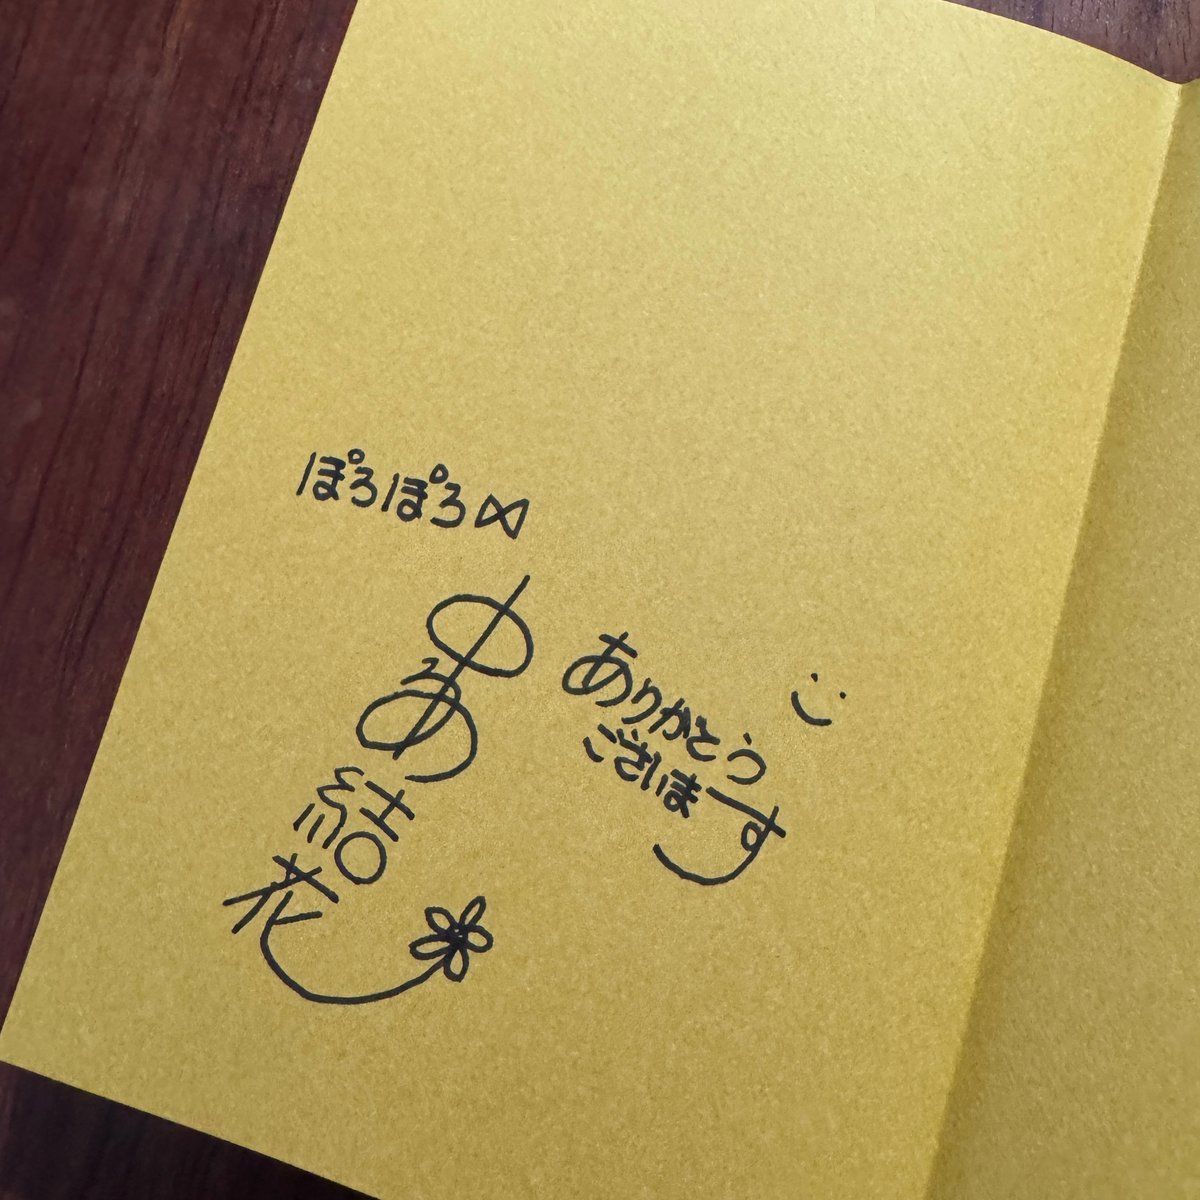 ぽろぽろ
結花
ありがとう
ございます